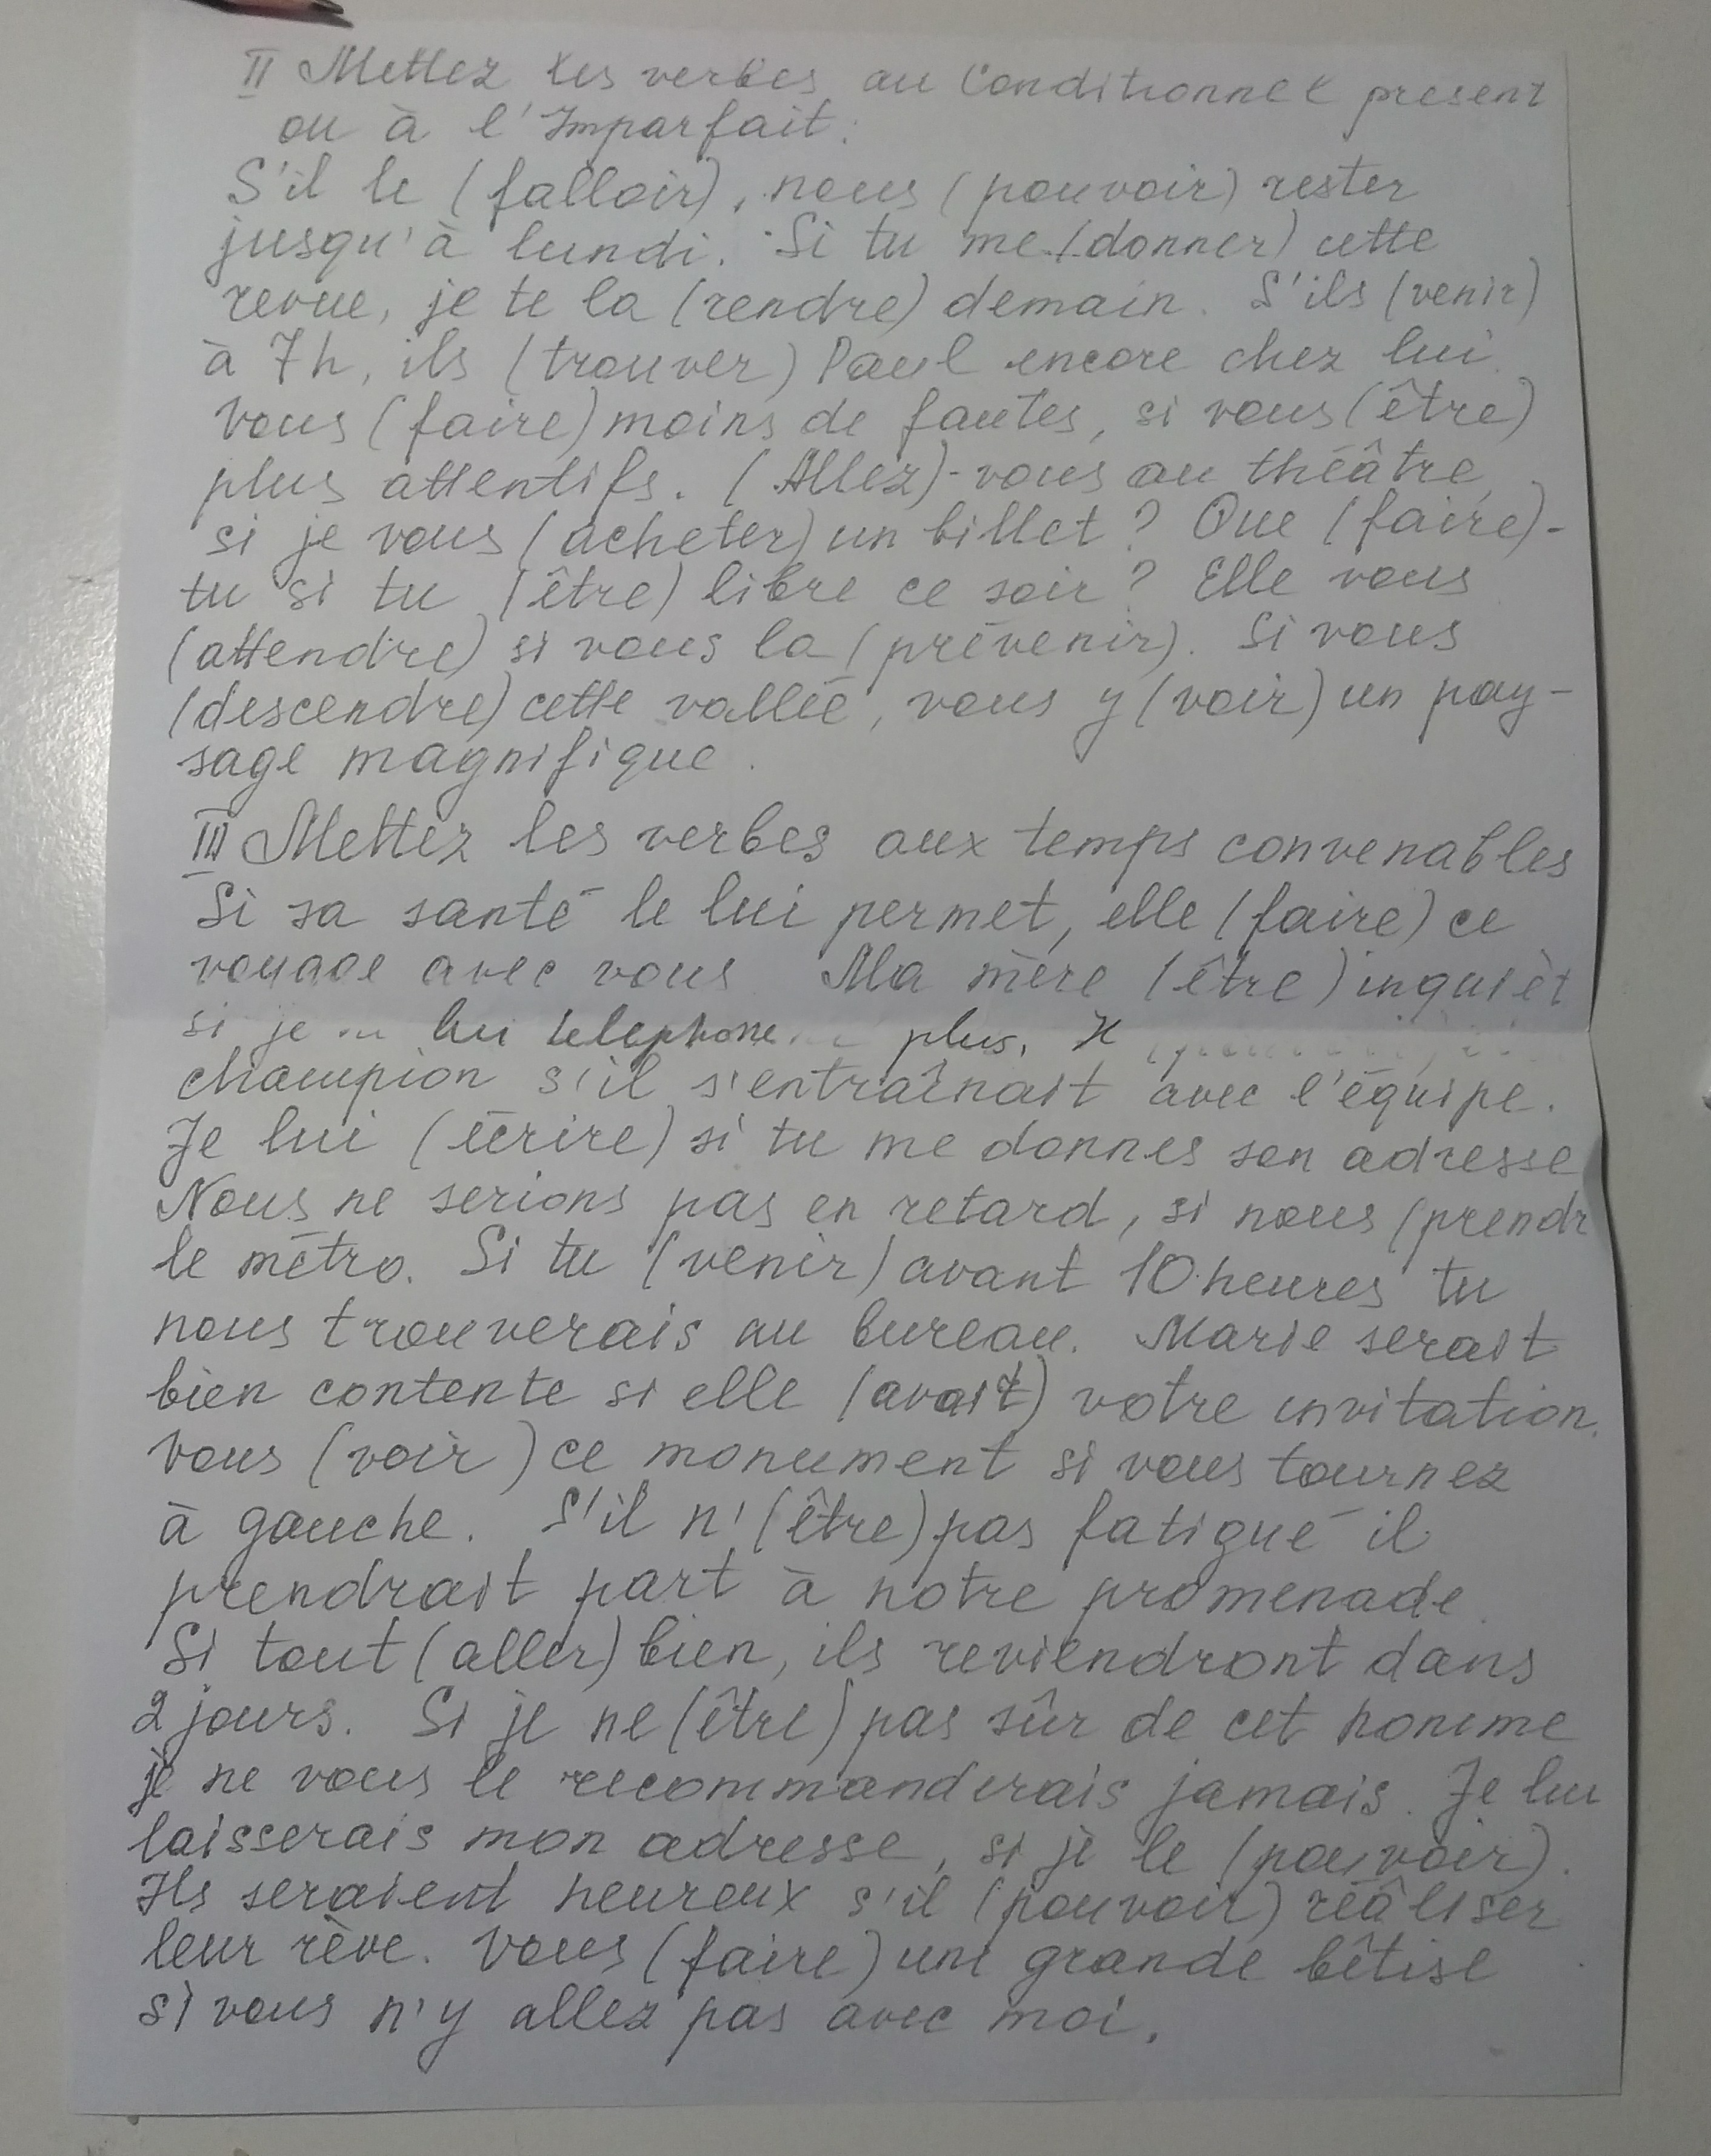 II Mettez les verbes au Conditionnel present
ou à l'Imparfait:
S'il le (falloir), nous (pouvoir) rester
jusqu'à lundi. Si tu me (donner) cette
revue, je te la (rendre) demain. S'ils (venir)
à 7h, ils (trouver) Paul encore chez lui.
Vous (faire) moins de fautes, si vous (être)
plus attentifs. (Allez)-vous au théâtre,
si je vous (acheter) un billet? Que (faire)-
tu si tu (être) libre ce soir? Elle vous
(attendre) si vous la (prévenir). Si vous
(descendre) cette vallée, vous y (voir) un pay-
sage magnifique.
III Mettez les verbes aux temps convenables
Si sa santé le lui permet, elle (faire) ce
voyage avec vous Ma mère (être) inquièt
si je lui telephone plus, Il
champion s'il s'entraînait avec l'équipe.
Je lui (écrire) si tu me donnes son adresse
Nous ne serions pas en retard, si nous (prendr
le métro. Si tu (venir) avant 10 heures tu
nous trouverais au bureau. Marie serait
bien contente si elle (avait) votre invitation.
Vous (voir) ce monument si vous tournez
à gauche. S'il n'(être) pas fatigué il
prendrait part à notre promenade.
Si tout (aller) bien, ils reviendront dans
2 jours. Si je ne (être) pas sûr de cet homme
je ne vous le recommanderais jamais. Je lui
laisserais mon adresse, si je le (pouvoir).
Ils seraient heureux s'il (pouvoir) réâliser
leur rève. Vous (faire) une grande bêtise
si vous n'y allez pas avec moi.